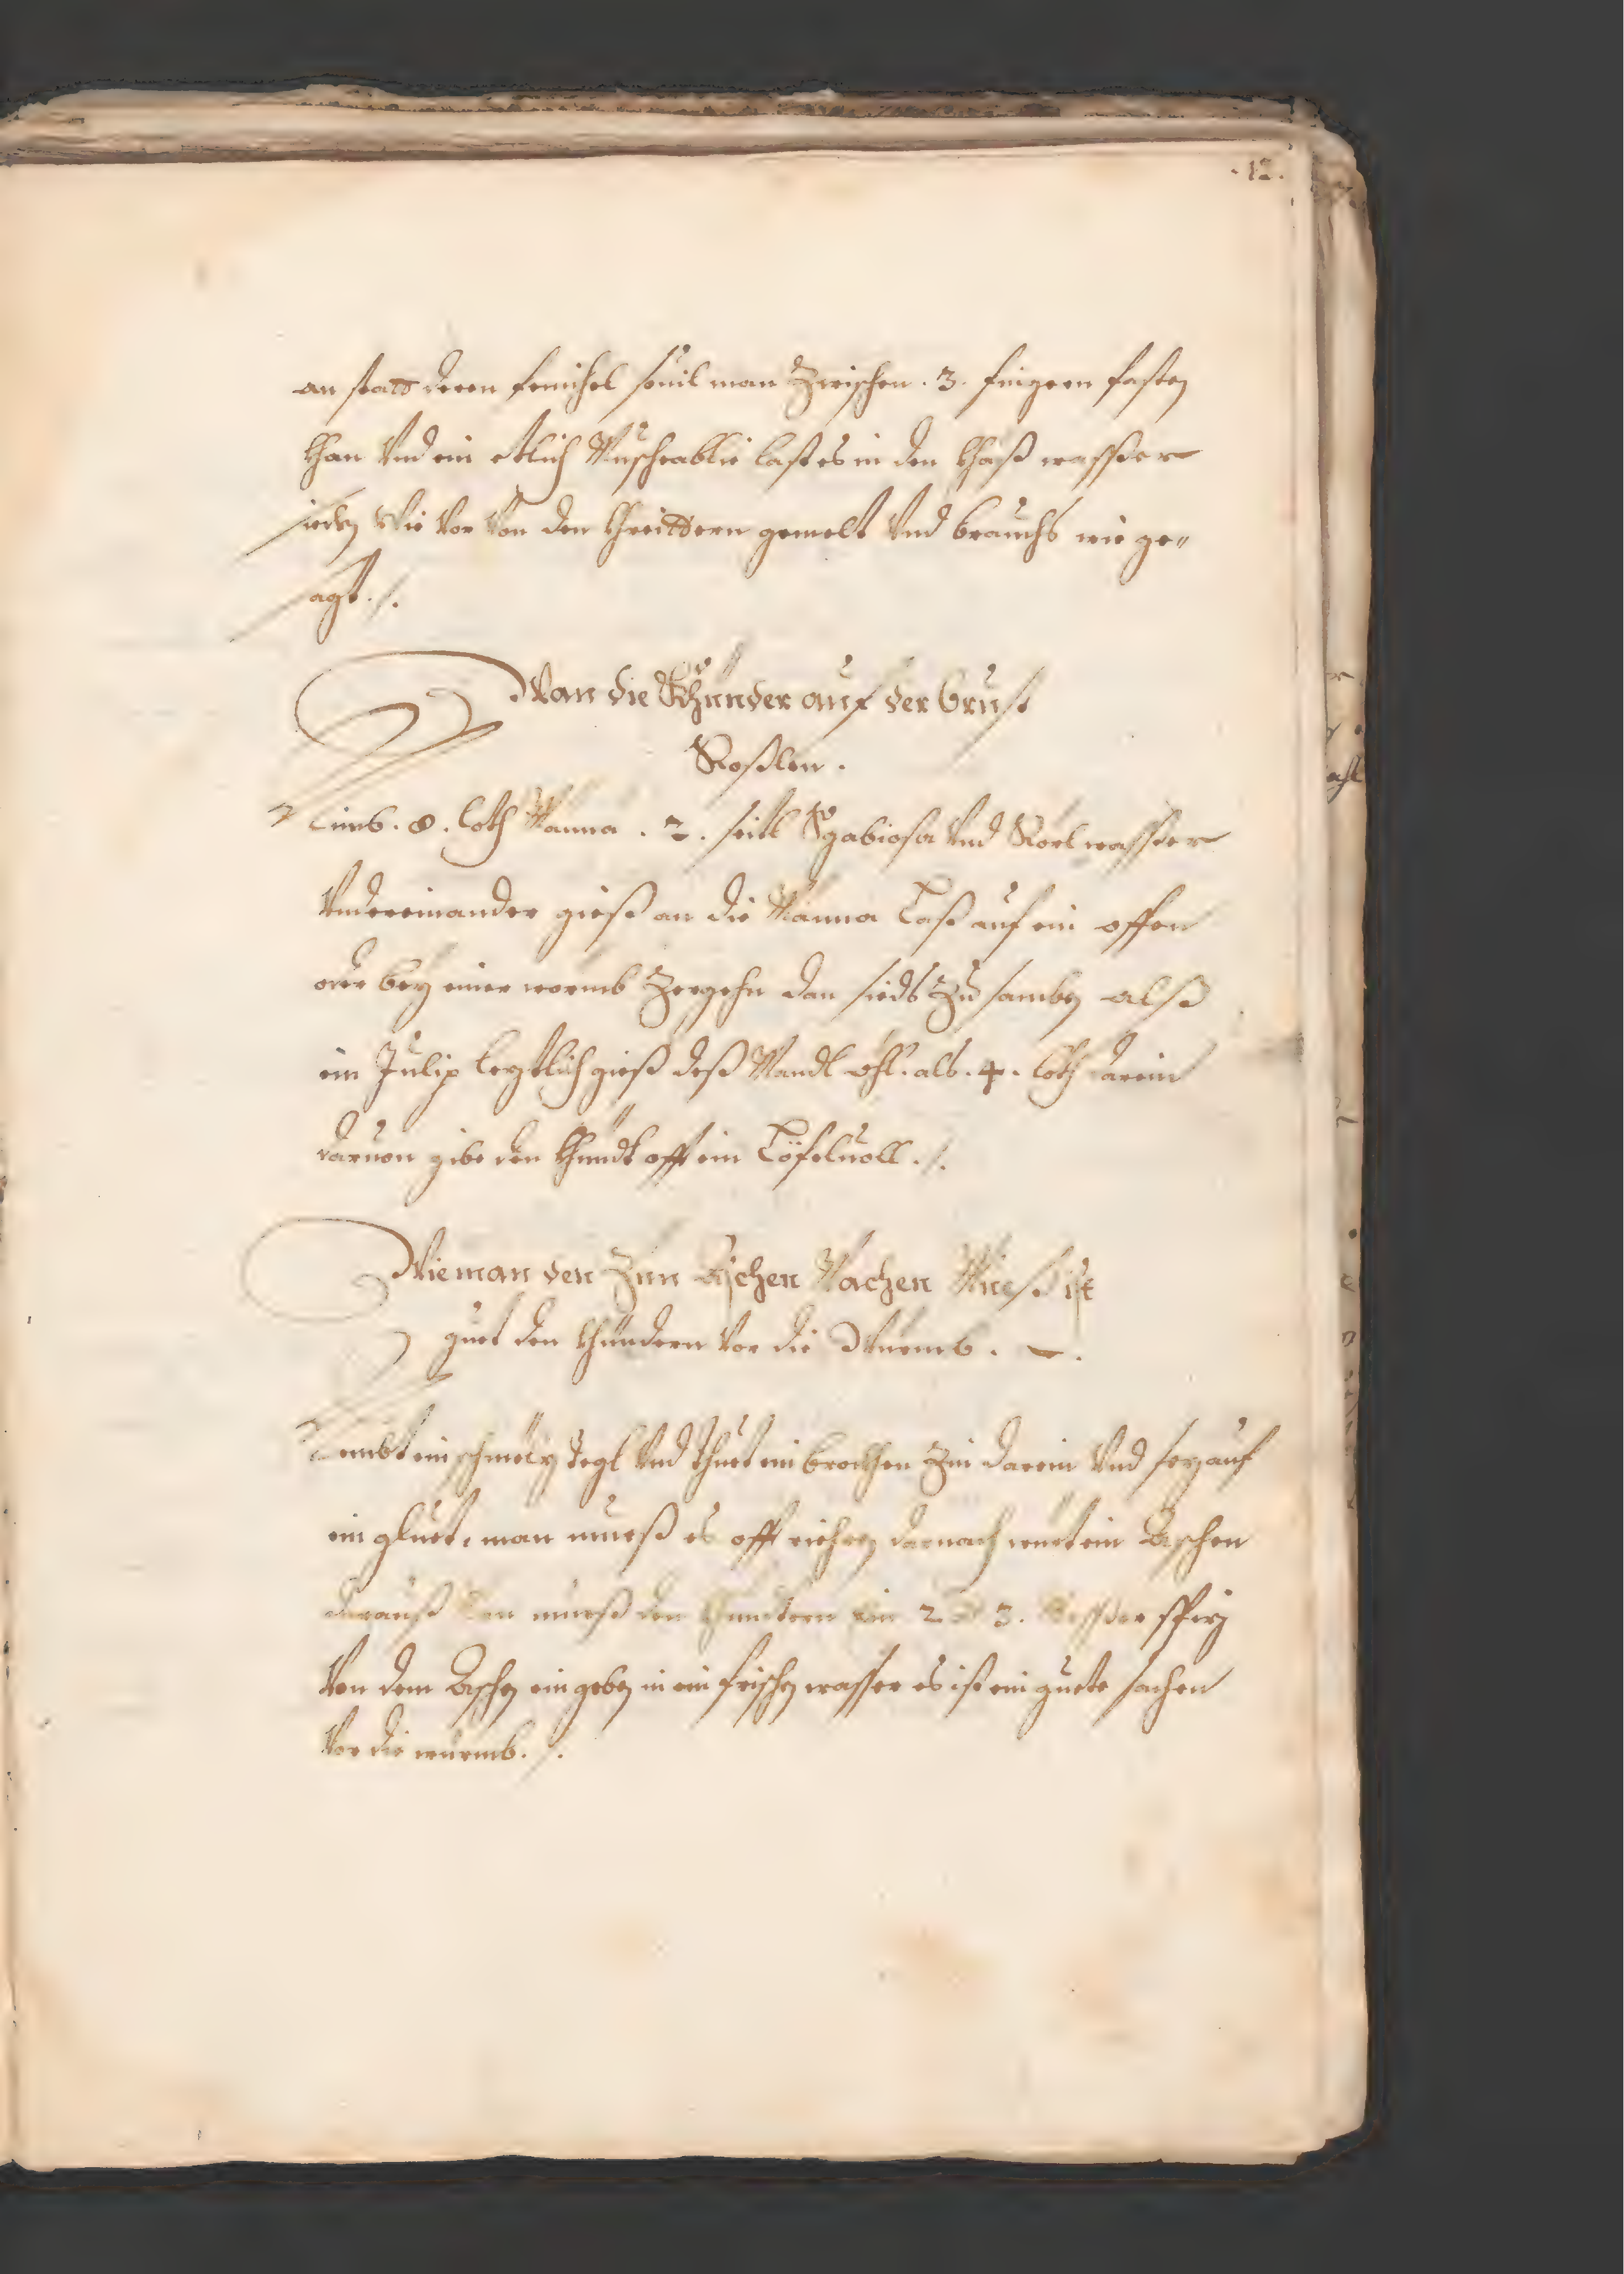 .12.
an statt deren fenichel souil man Zwischen .3. fingern fassen
khan Vnd ein etlich Muschcablie last es in den khäß wasßer
sieden Wie Vor Von den khreittern gemelt Vnd brauchs wie ge„
sagt ./.
Wan die Khünder auf der brust
Roßlen .
Nimb . 8 . loth Manna . 2 . seitl Scabiosa Vnd Körl wasßer
Vndereinander gieß an die Manna Laß auf ein offen
oder bey einer wormb Zergehn dan sieds Zu samben alß
ein Julip leztlich gieß deß Mandl öhl . alb . 4 . loth darein
daruon gibe den khindt offt ein Löfeluoll ./.
Wie man den Zün Aschen Machen Mueß ist
guet den khündern Vor die Würmb .
Nembt ein schmölz Tegl Vnd thuet ein brockhen Zin darein Vnd sez auf
ein gluet, man mueß es offt riehren darnach würt ein Aschen
darauß mueß den khindern ein 2 3 . Messer spiz
Von dem Aschen ein geben in ein frischen wasser es ist ein guete sachen
Vor die würmb ./.